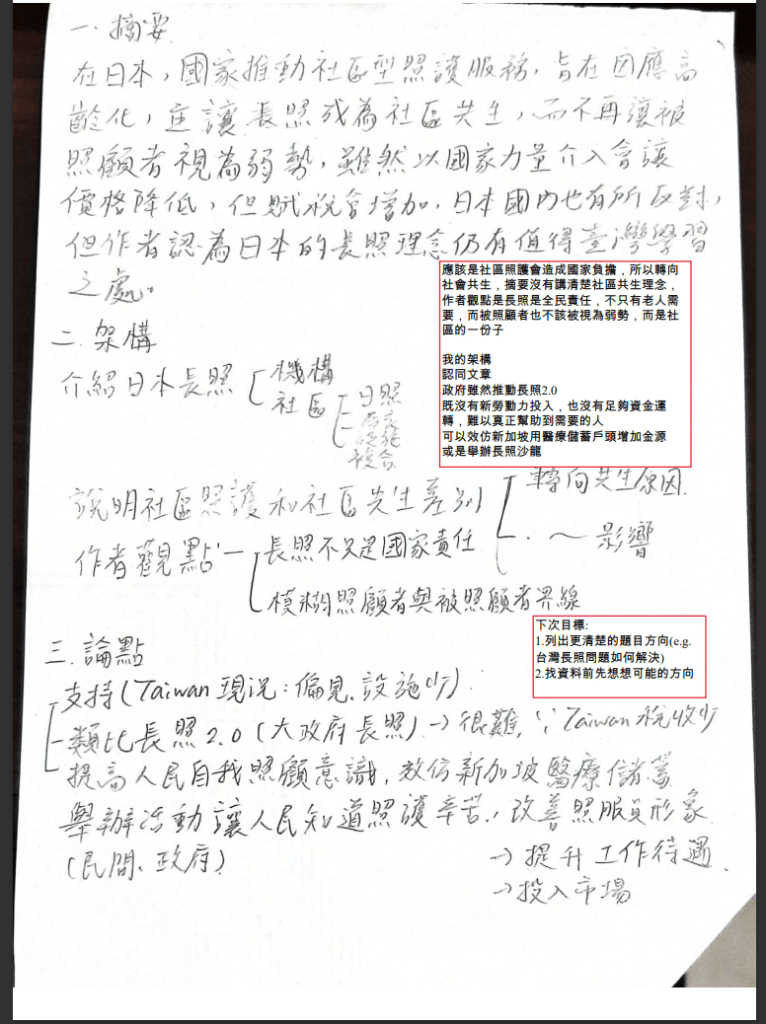 一、摘要
在日本，國家推動社區型照護服務，旨在因應高
齡化，並讓長照成為社區共生，而不再讓被
照顧者視為弱勢，雖然以國家力量介入會讓
價格降低，但賦稅會增加，日本國內也有所反對，
但作者認為日本的長照理念仍有值得臺灣學習
之處。
應該是社區照護會造成國家負擔，所以轉向
社會共生，摘要沒有講清楚社區共生理念，
作者觀點是長照是全民責任，不只有老人需
要，而被照顧者也不該被視為弱勢，而是社
區的一份子
我的架構
認同文章
政府雖然推動長照2.0
既沒有新勞動力投入，也沒有足夠資金運
轉，難以真正幫助到需要的人
可以效仿新加坡用醫療儲蓄戶頭增加金源
或是舉辦長照沙龍
二、架構
介紹日本長照
機構
社區
日照
居家
複合
說明社區照護和社區共生差別
轉向共生原因
～影響
作者觀點
長照不只是國家責任
模糊照顧者與被照顧者界線
下次目標:
1.列出更清楚的題目方向(e.g.
台灣長照問題如何解決)
2.找資料前先想想可能的方向
三、論點
支持(Taiwan 現況：偏見、設施少)
類比長照2.0(大政府長照)→很難，∵Taiwan 稅收少
提高人民自我照顧意識，效仿新加坡醫療儲蓄
舉辦活動讓人民知道照護辛苦，改善照服員形象
(民間、政府)
→提升工作待遇
→投入市場